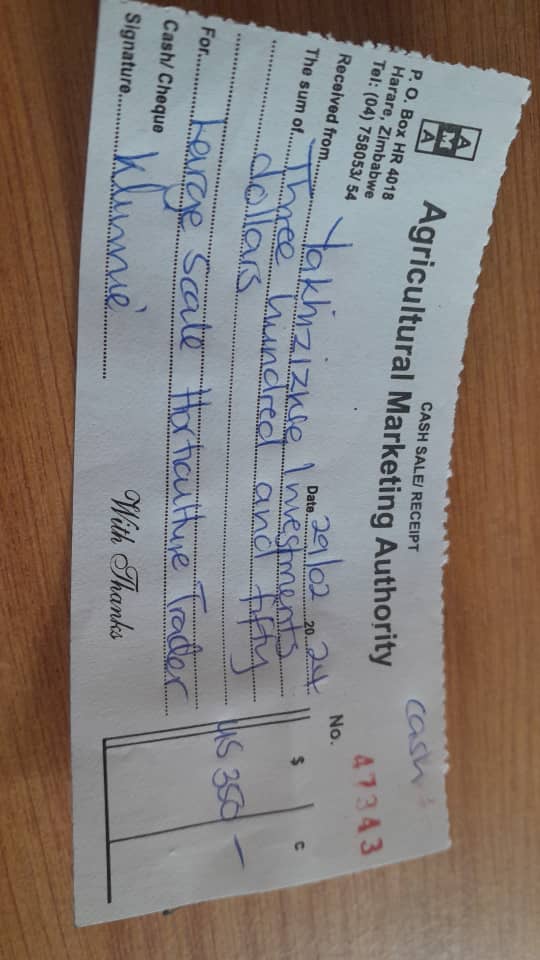 CASH SALE/ RECEIPT
cash
Agricultural Marketing Authority
AMA
P. O. Box HR 4018
Harare, Zimbabwe
Tel: (04) 758053/ 54
No. 47343
Date 29/02 20 24
Received from Yakhizizwe Investments
The sum of Three hundred and fifty
dollars
For Large Scale Horticulture Trader
$ c
US 350 -
Cash/ Cheque
Signature
With Thanks